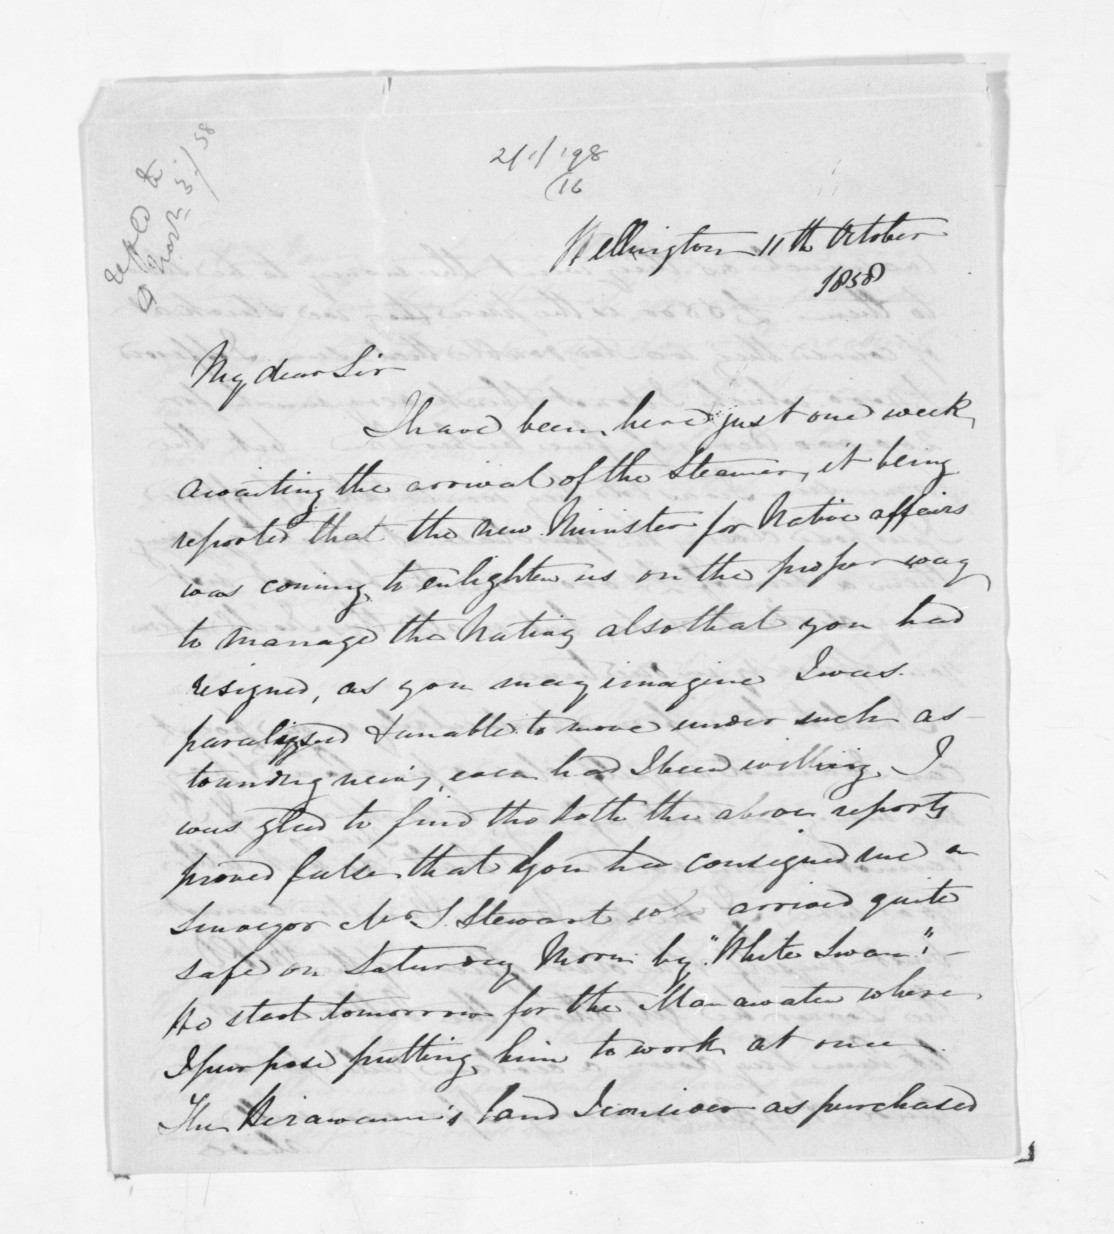 replied to
March 3./58
2/1/198
16
Wellington 11th October
1858
My dear Sir
I have been here just one week
awaiting the arrival of the Steamer, it being
reported that the new Minister for Native affairs
was coming to enlighten us on the proper way
to manage the Natives also that you had
resigned, as you may imagine I was
paralized & unable to move under such as-
tounding news, even had I been willing, I
was glad to find tho both the above reports
proved false, that you had consigned me a
Surveyor Mr. J. Stewart who arrived quite
safe on Saturday Morn by "White Swan" -
We start tomorrow for the Manawatu where
I purpose putting him to work at once
The Hirawanu's land I consider as purchased